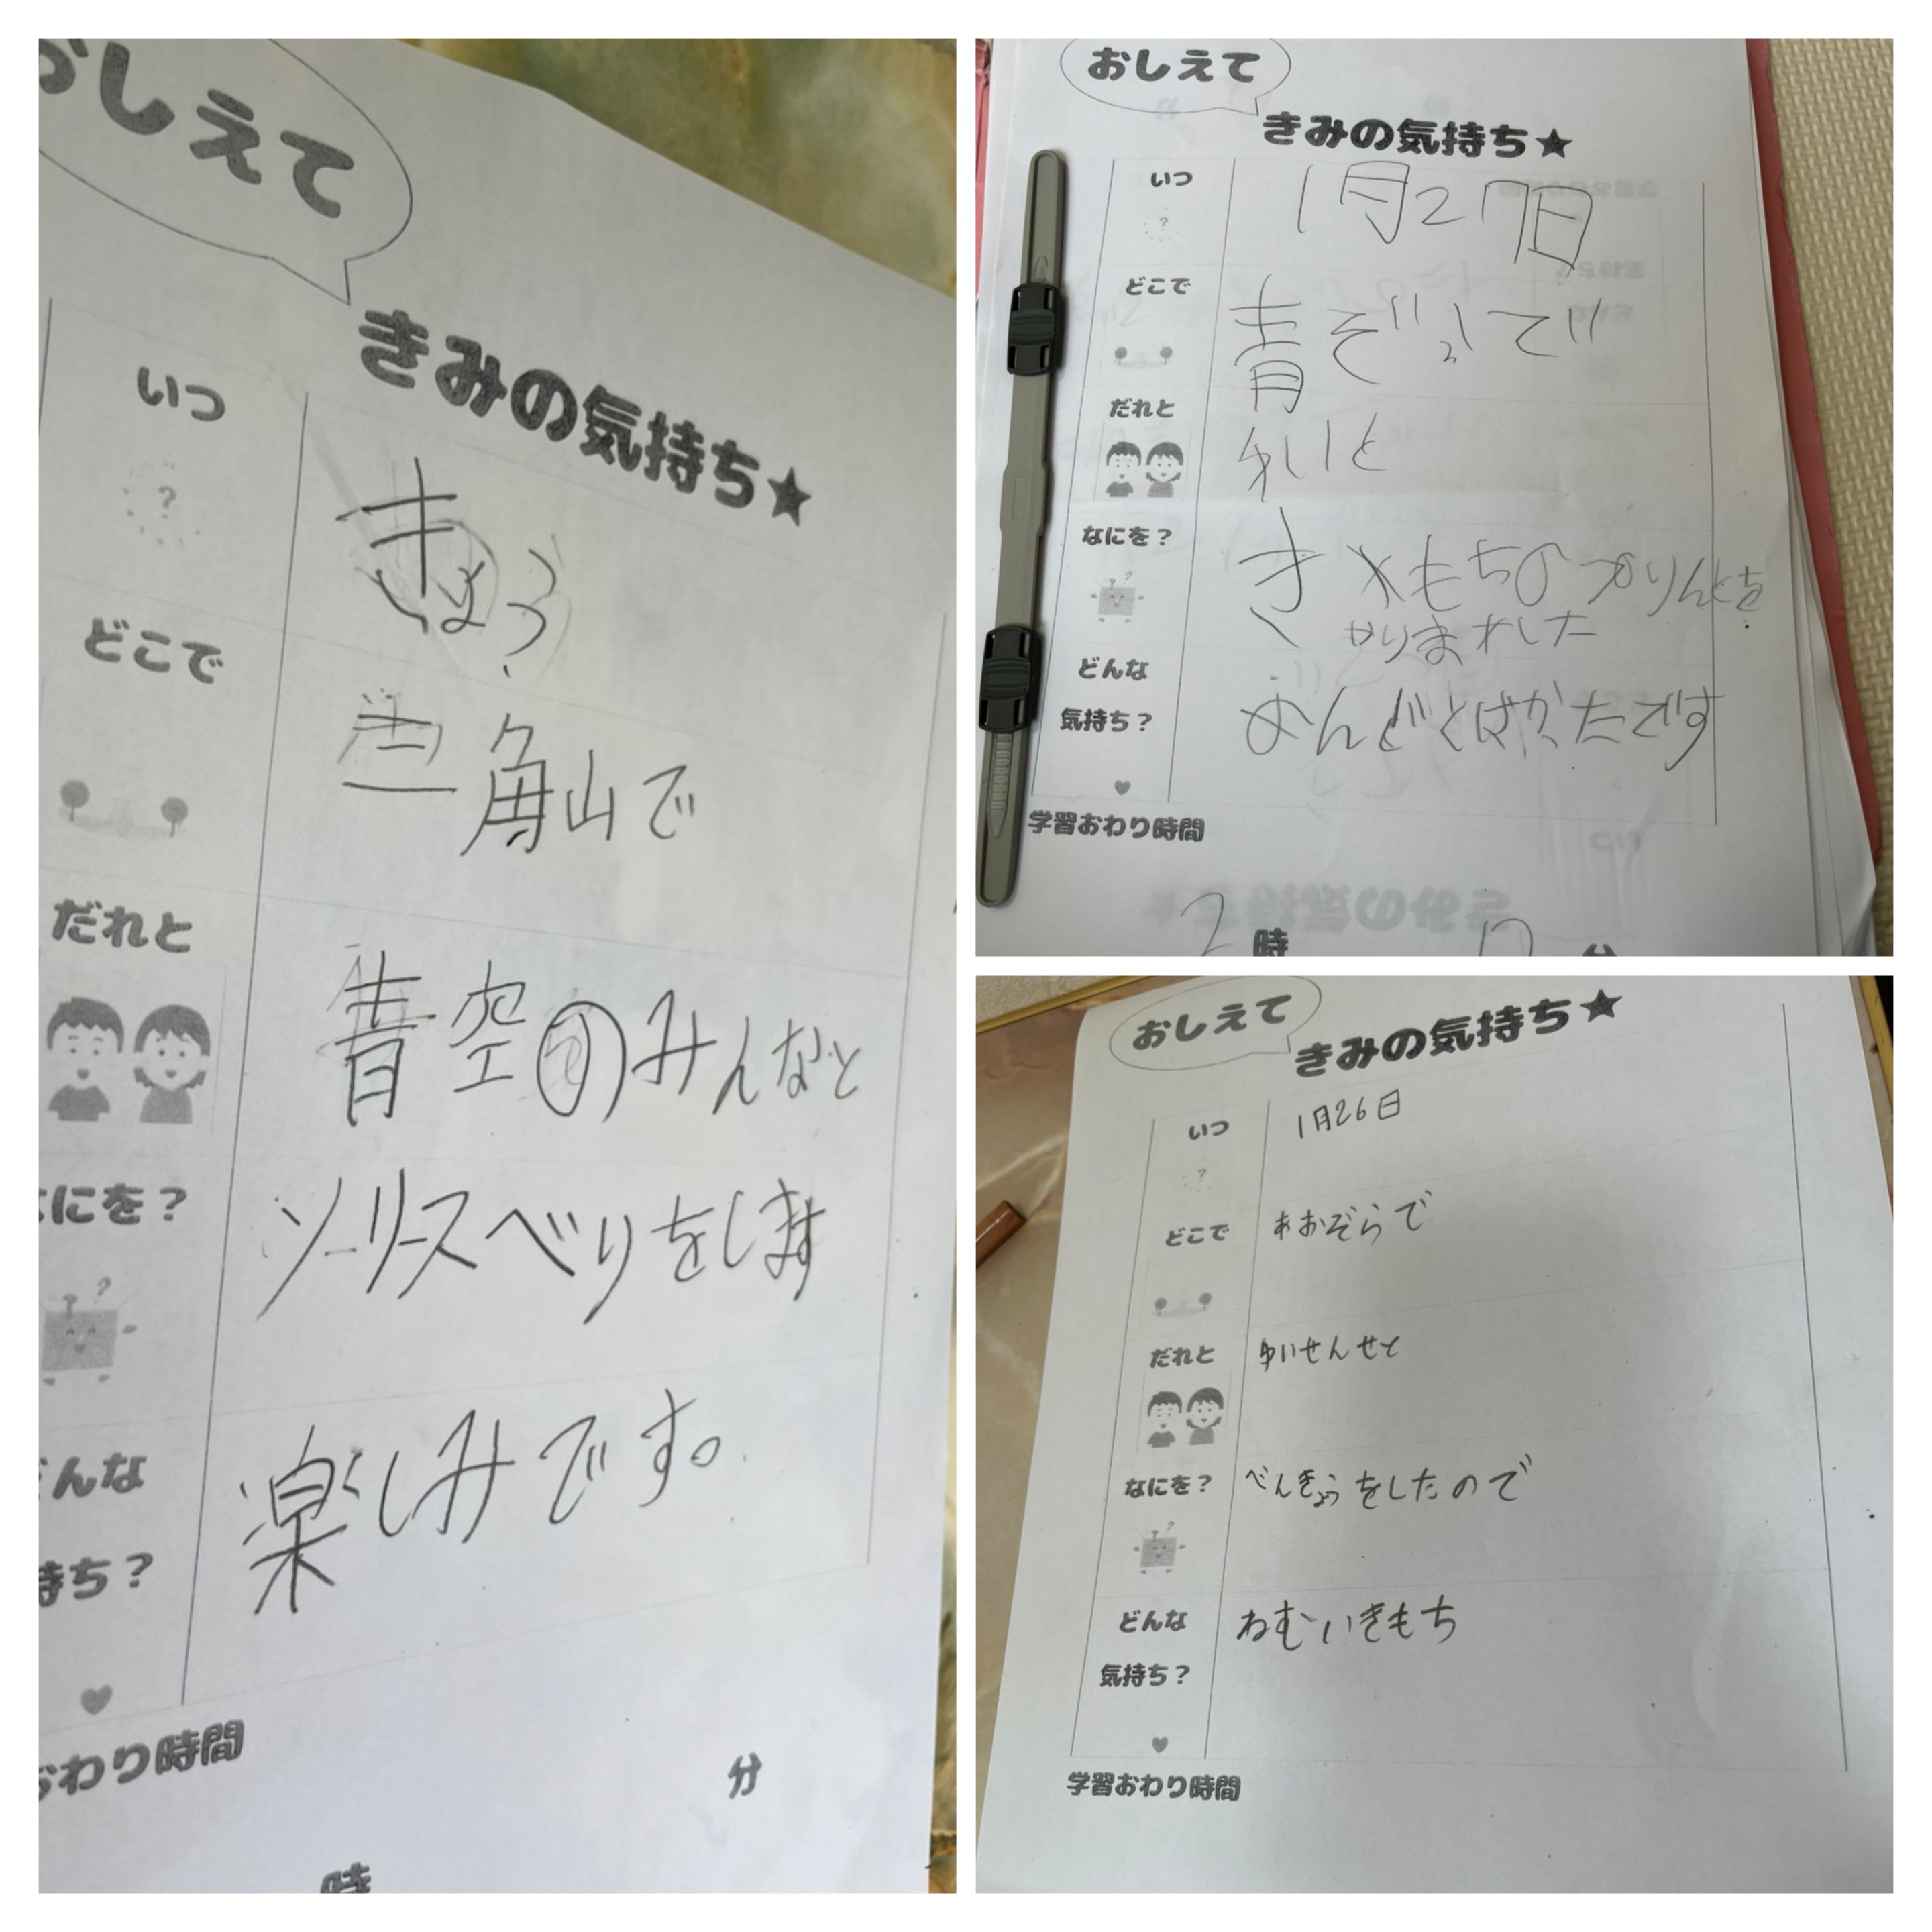 おしえて
きみの気持ち★
いつ
きょう
どこで
三角山で
だれと
青空のみんなと
なにを?
ソーリースベリをします
んな
楽しみです。
持ち?
おわり時間
時
分
おしえて
きみの気持ち★
いつ
1月27日
どこで
青ぞらで
だれと
ゆいと
なにを?
きもちのプリントを
やりました
どんな
気持ち?
学習おわり時間
2 時 分
おしえて
きみの気持ち★
いつ
1月26日
どこで
あおぞらで
だれと
ゆいせんせと
なにを?
べんきょうをしたので
どんな
ねむいきもち
気持ち?
学習おわり時間